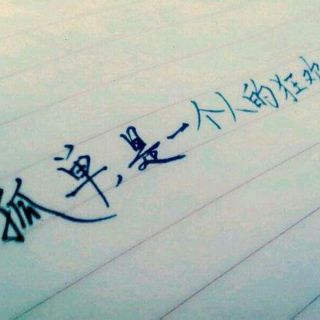 孤单,是一个人的狂欢